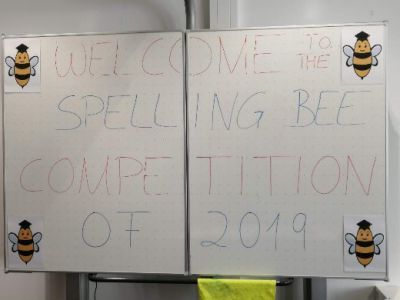 WELCOME TO THE
SPELLING BEE
COMPETITION
OF 2019